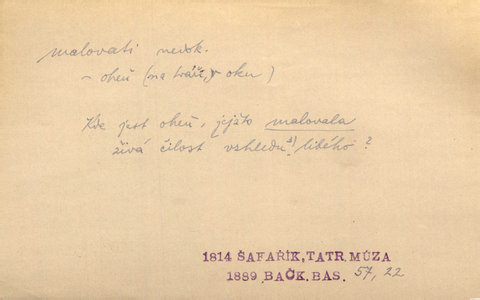 malovati nedok.
– oheň (na tváři, v oku)
Kde jest oheň, jejžto malovala
živá čilost vzhledu libého?
1814 ŠAFAŘÍK, TATR. MÚZA
1889 BAČK. BAS. 57, 22